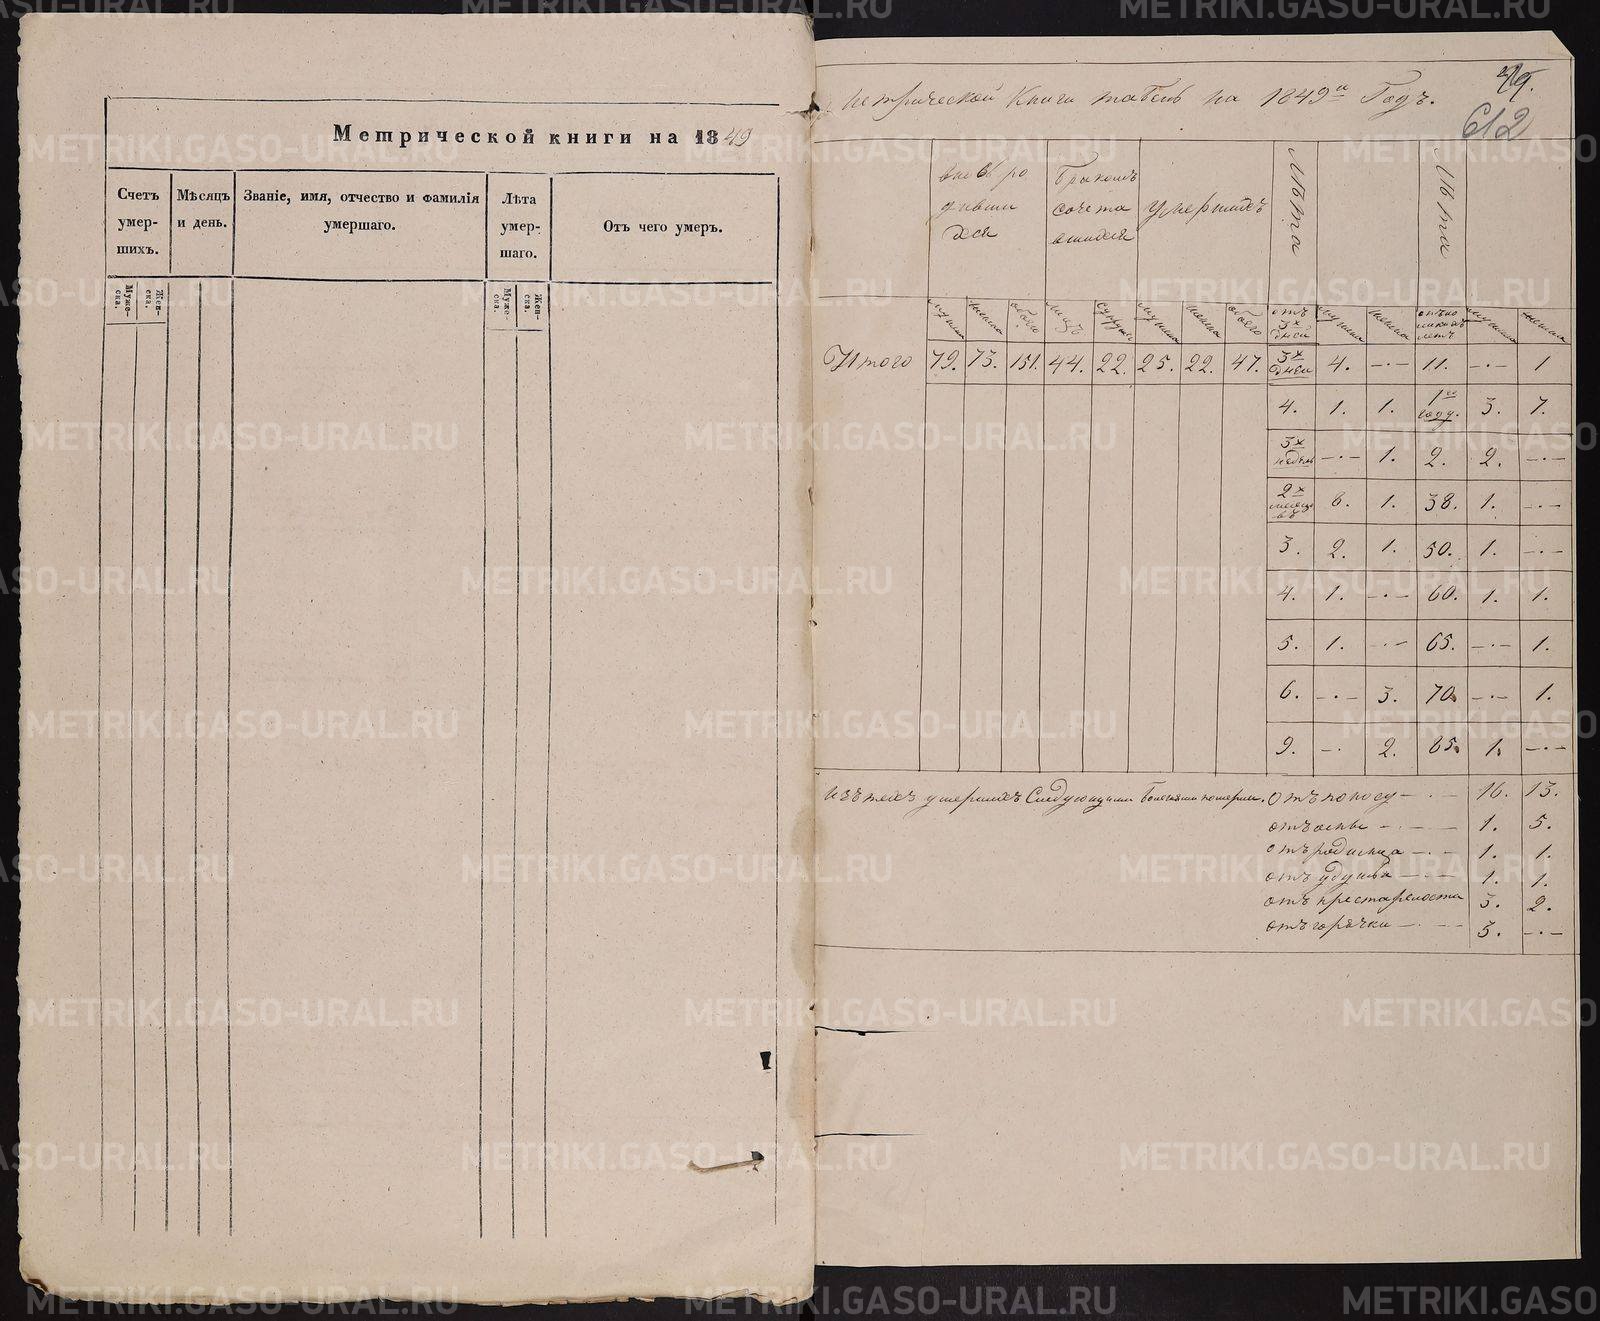 Метрической книги на 1849
Счетъ умер-шихъ.
Мѣсяцъ и день.
Званіе, имя, отчество и фамилія умершаго.
Лѣта умер-шаго.
Отъ чего умеръ.
Муже-ска.
Жен-ска.
Муже-ска.
Жен-ска.
Метрической Книги табель на 1849й Годъ.
49.
612
вновь ро дивши хся
Бракомъ сочета вшихся
умершихъ
Лѣта
Лѣта
мужска женска обоего лицъ супруж мужска женска обоего отъ 3х дней мужска женска мужска женска
Итого 79. 73. 151. 44. 22. 25. 22. 47. 3х дней 4. —·— 11. —·— 1
4. 1. 1. 1го году. 3. 7.
3х недѣль —·— 1. 2. 2. —·—
2х месяцовъ 6. 1. 38. 1. —·—
3. 2. 1. 50. 1. —·—
4. 1. —·— 60. 1. 1.
5. 1. —·— 65. —·— 1.
6. —·— 3. 70. —·— 1.
9. —· 2. 85. 1. —·—
Изъ техъ умершихъ Следующими болезнями померли. Отъ поносу — · — 16. 13.
отъ оспы — · — 1. 5.
отъ родимца — · — 1. 1.
отъ удушья — · — 1. 1.
отъ престарелости 3. 2.
отъ горячки — · — 3. —·—
METRIKI.GASO-URAL.RU